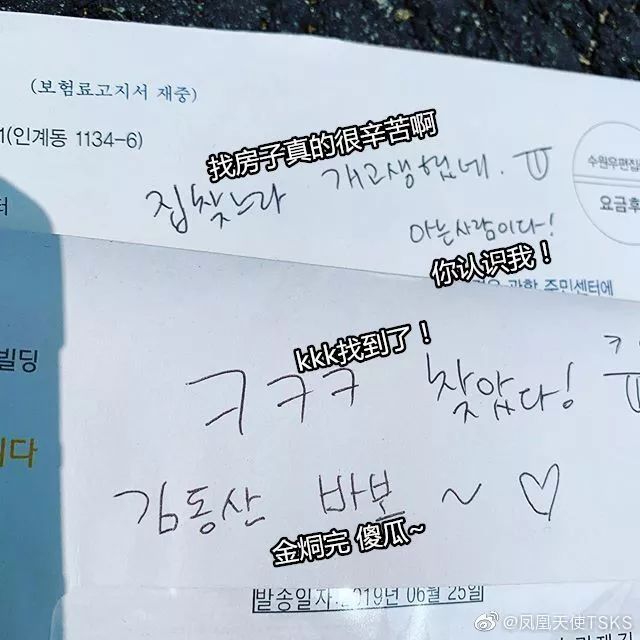 (보험료고지서 재중)
1(인계동 1134-6)
找房子真的很辛苦啊
집찾느라 개고생했네. ㅠ
수원우편집
요금후
터
아는사람이다!
你认识我！
주민센터에
kkk找到了！
빌딩
ㅋㅋㅋ 찾았다! ㅋ
ㅠ
니다
김동산 바보 ~ ♡
金烔完 傻瓜~
발송일자:2019년 06월 25일
@凤凰天使TSKS